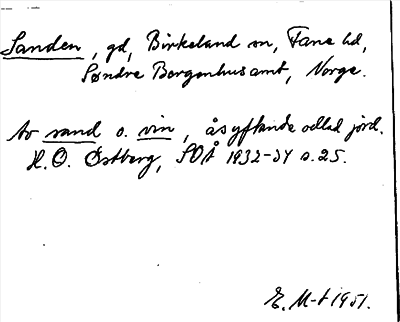 Sanden, gd, Birkeland sn, Fane hd,
Søndre Bergenhus amt, Norge.
Av sand o. vin, åsyftande odlad jord.
H. O. Østberg, SOÅ 1932-34 s. 25.
E. M-t 1951.